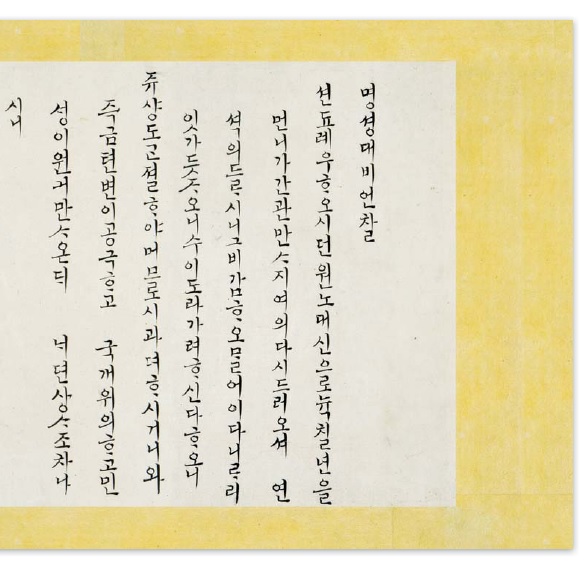 명셩대비언찰
션됴례우ᄒᆞ오시던원노대신으로뉵칠년을
먼니가간관만ᄉᆞ지여의다시드러오셔 연
셕의드르시니그비감ᄒᆞ오믈어이다니르리
잇가듯ᄌᆞ오니수이도라가려ᄒᆞ신다ᄒᆞ오니
쥬샹도ᄀᆞ졀ᄒᆞ야머므로시과뎌ᄒᆞ시거니와
즉금텬변이공극ᄒᆞ고 국개위의ᄒᆞ고민
셩이원거만ᄉᆞ온ᄃᆡ 녀뎐상ᄉᆞ조차나
시니